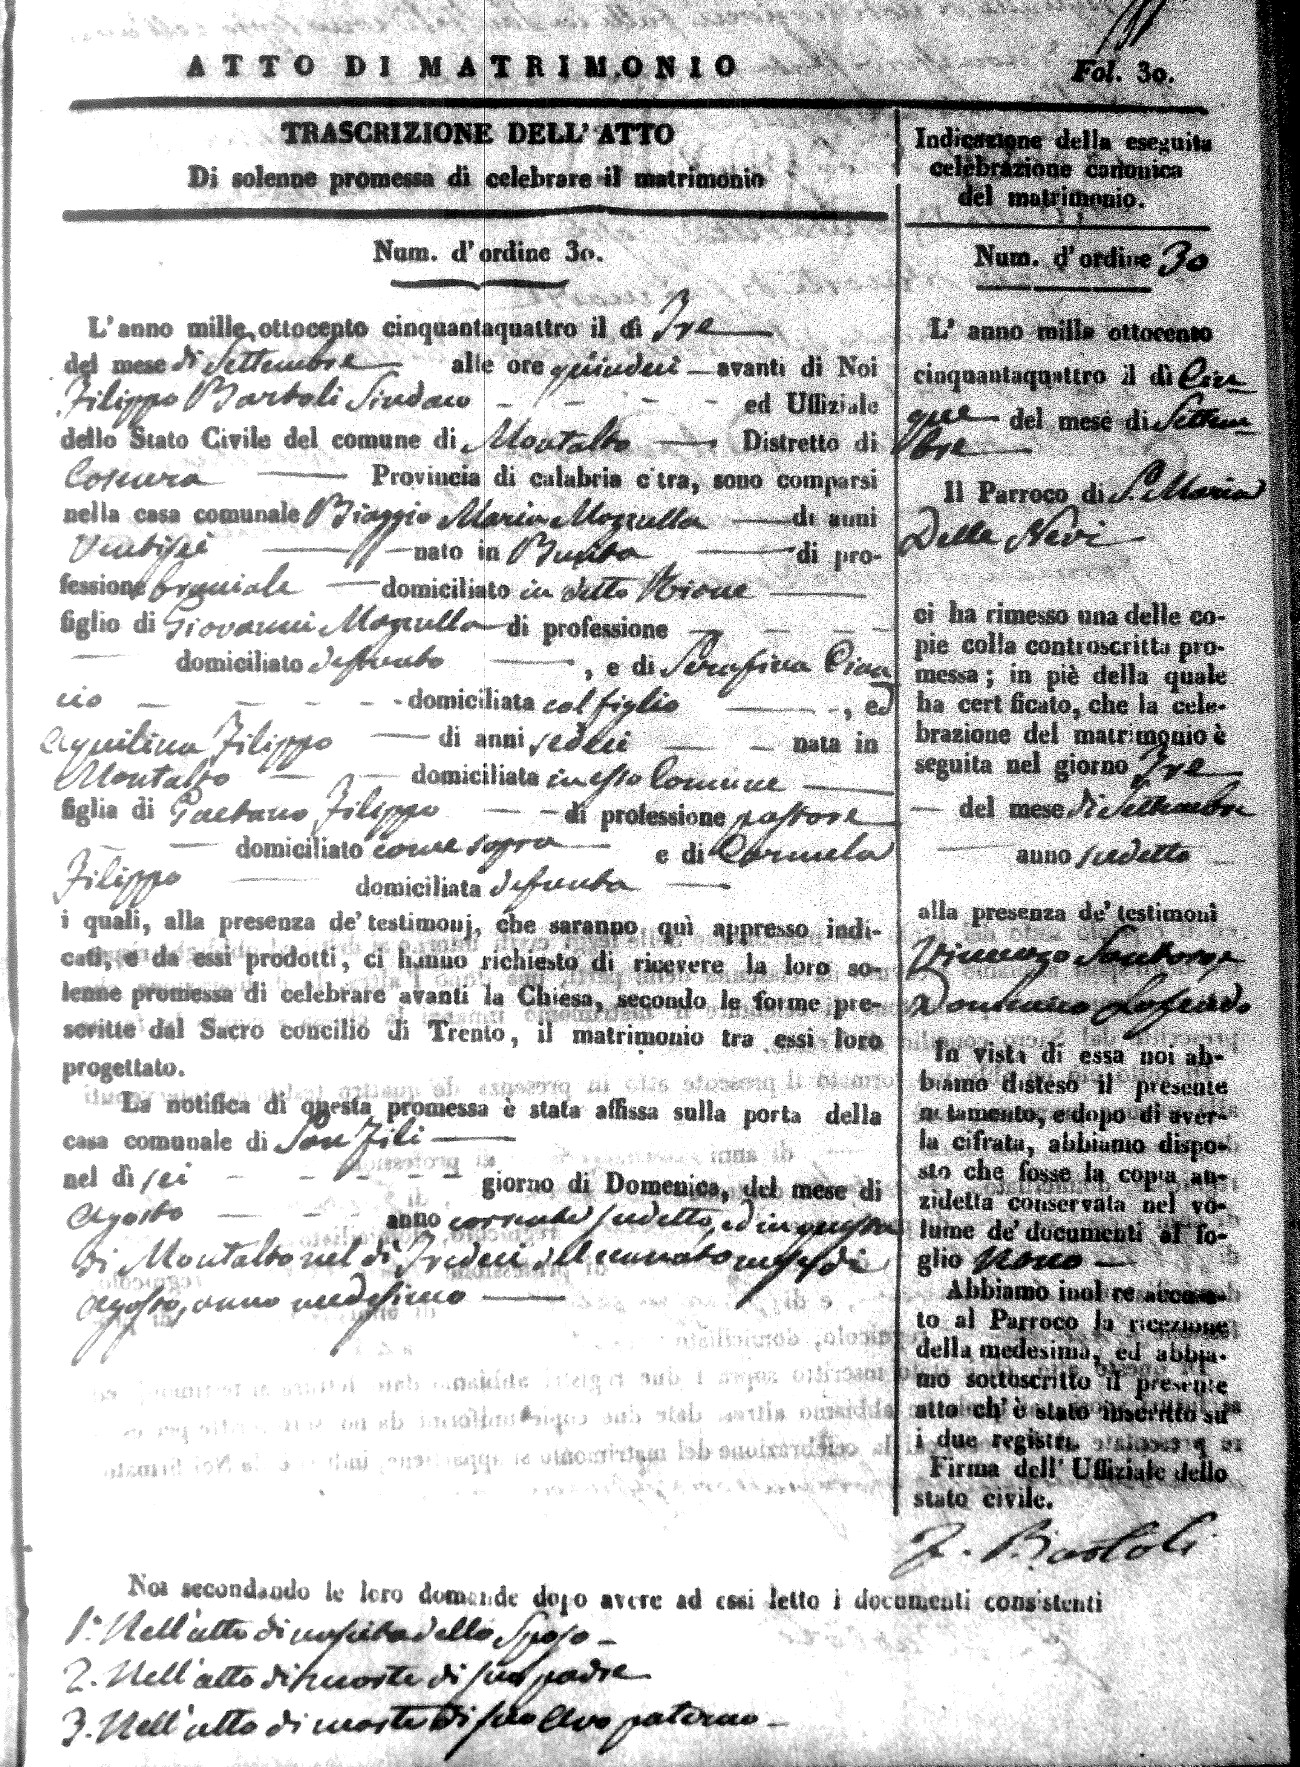 ATTO DI MATRIMONIO
Fol. 30.
TRASCRIZIONE DELL'ATTO
Di solenne promessa di celebrare il matrimonio
Num. d'ordine 30.
L'anno mille ottocento cinquantaquattro il dì Tre
del mese di Settembre alle ore quindici avanti di Noi
Filippo Bartoli Sindaco ed Uffiziale
dello Stato Civile del comune di Montalto Distretto di
Cosenza Provincia di calabria citra, sono comparsi
nella casa comunale Biaggio Maria Mazzulla di anni
Ventisei nato in Bucita di pro-
fessione braciale domiciliato in detto Rione
figlio di Giovanni Mazzulla di professione
domiciliato defunto , e di Serafina Cian
cio domiciliata col figlio , ed
Aquilina Filippo di anni sedeci nata in
Montalto domiciliata in esso Comune
figlia di Gaetano Filippo di professione pastore
domiciliato come sopra e di Carmela
Filippo domiciliata defunta
i quali, alla presenza de' testimonj, che saranno quì appresso indi-
cati, e da essi prodotti, ci hanno richiesto di ricevere la loro so-
lenne promessa di celebrare avanti la Chiesa, secondo le forme pre-
scritte dal Sacro concilio di Trento, il matrimonio tra essi loro
progettato.
La notifica di questa promessa è stata affissa sulla porta della
casa comunale di San Fili
nel dì sei giorno di Domenica, del mese di
Agosto anno corrente sudetto, ed in questa
di Montalto nel dì Tredeci del ennato mese di
Agosto, anno medesimo
Indicazione della eseguita
celebrazione canonica
del matrimonio.
Num. d'ordine 30
L' anno mille ottocento
cinquantaquattro il dì Cin
que del mese di Settem
bre
Il Parroco di S. Maria
Delle Nevi
ci ha rimesso una delle co-
pie colla controscritta pro-
messa; in piè della quale
ha certificato, che la cele-
brazione del matrimonio è
seguita nel giorno Tre
del mese di Settembre
anno sudetto
alla presenza de' testimoni
Vincenzo Santoro e
Domenico Loffredo
In vista di essa noi ab-
biamo disteso il presente
notamento, e dopo di aver-
la cifrata, abbiamo dispo-
sto che fosse la copia an-
zidetta conservata nel vo-
lume de' documenti al fo-
glio Nono
Abbiamo inoltre accusa-
to al Parroco la ricezione
della medesima, ed abbia-
mo sottoscritto il presente
atto ch' è stato inscritto su
i due registri.
Firma dell' Uffiziale dello
stato civile.
F. Bartoli
Noi secondando le loro domande dopo avere ad essi letto i documenti consistenti
1.° Nell'atto di nascita dello Sposo
2. Nell'atto di morte di suo padre
3. Nell'atto di morte di suo Avo paterno